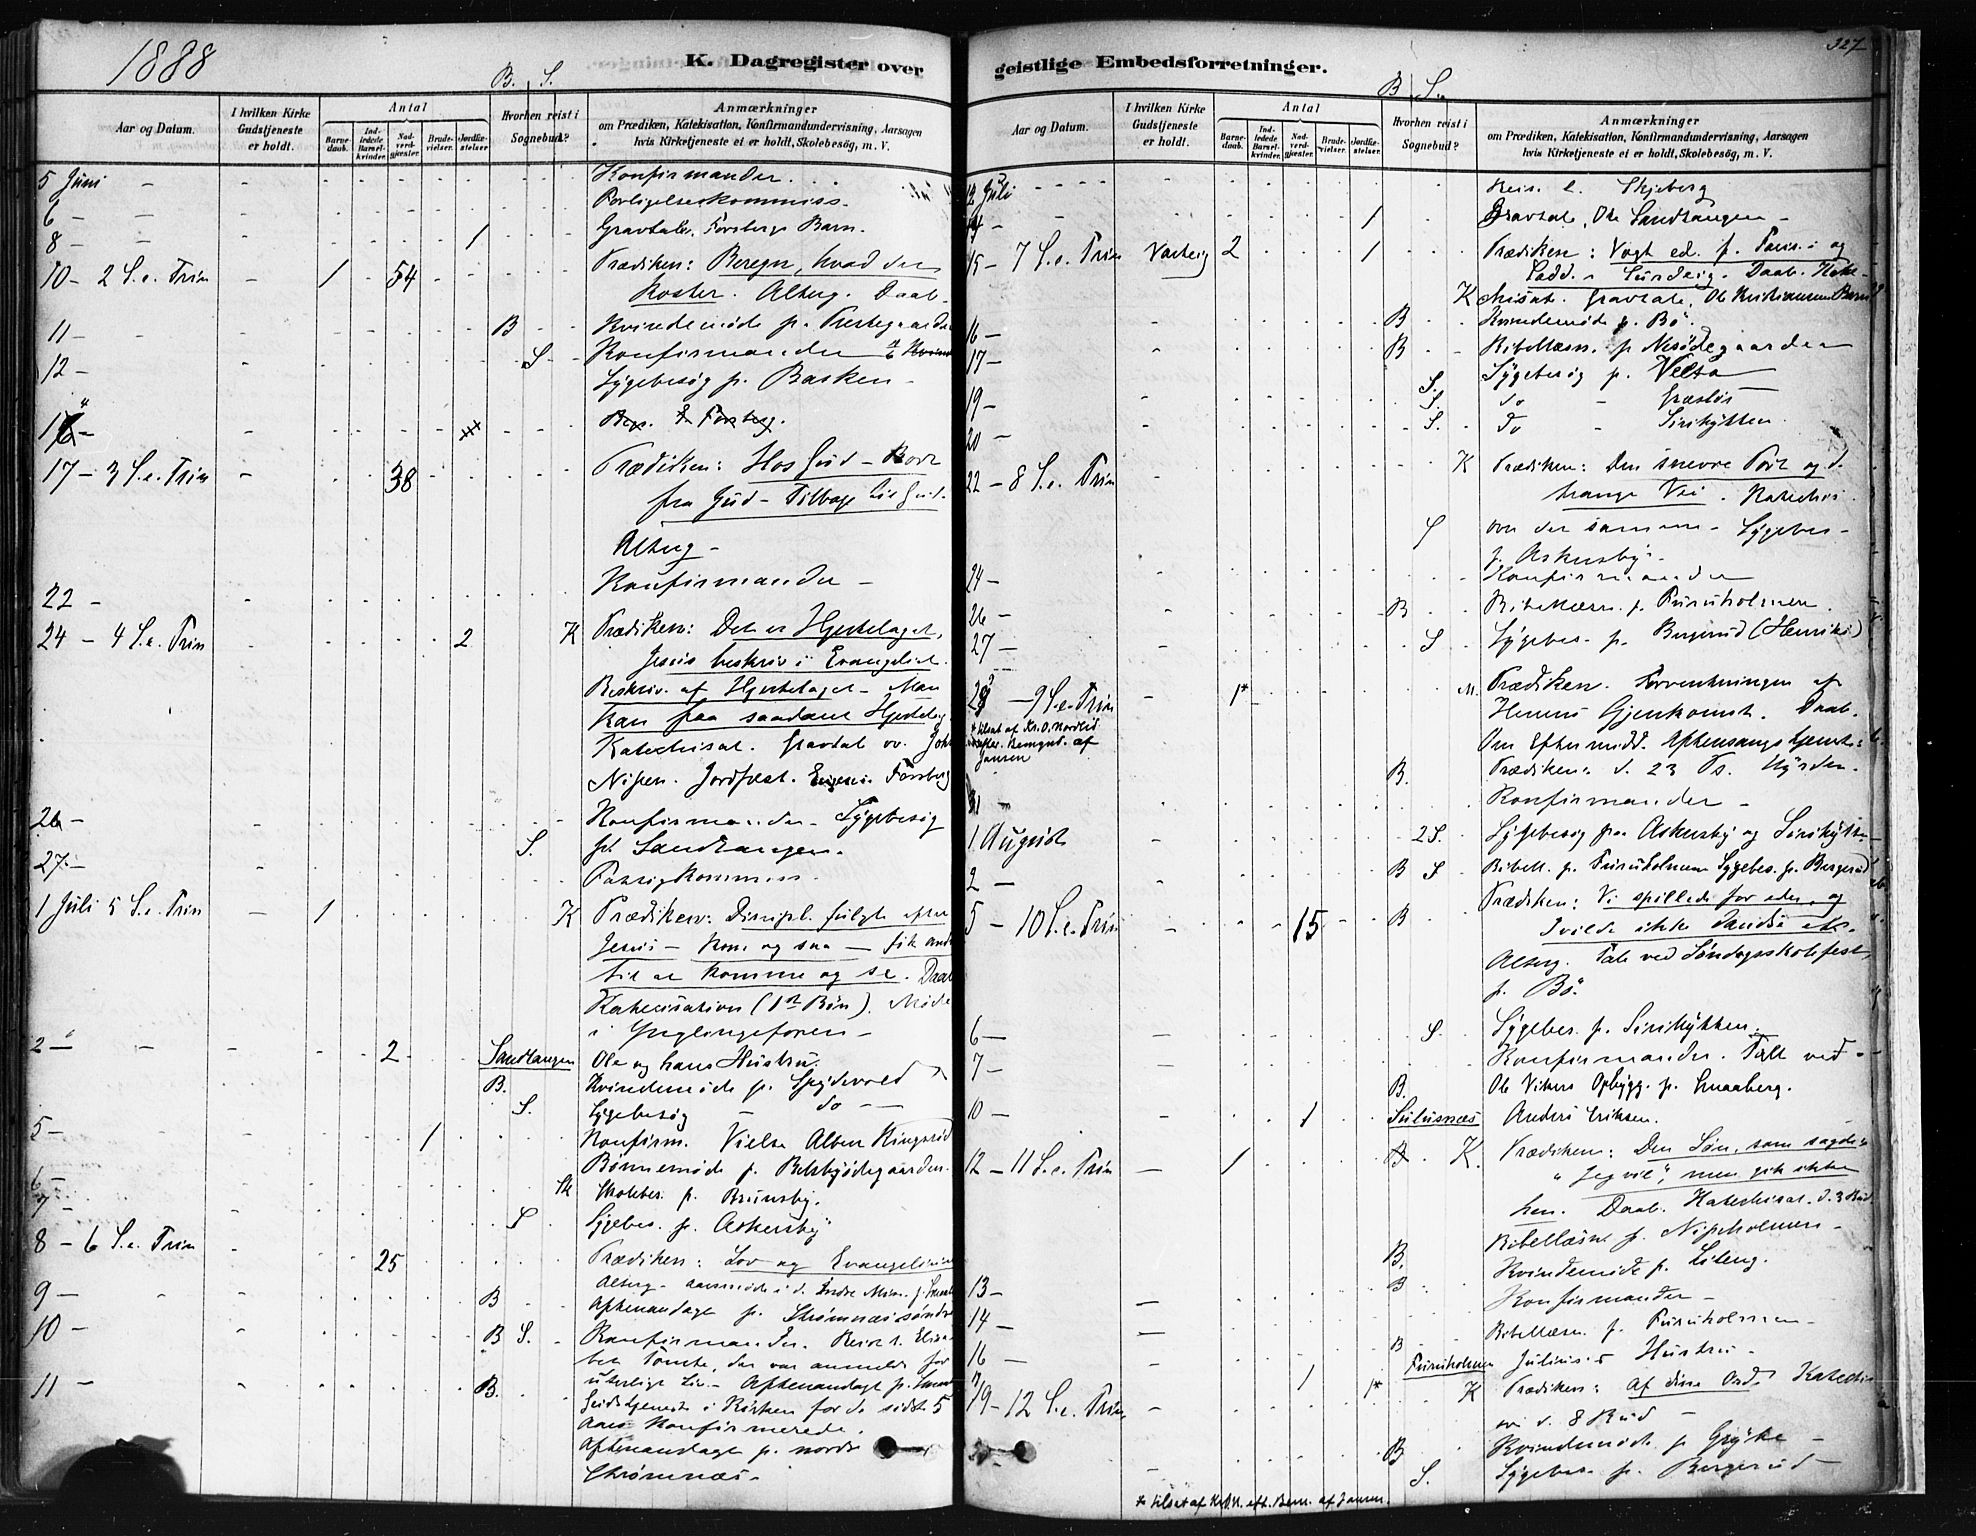 1888
K. Dagregister over
B. S.
Aar og Datum.
I hvilken Kirke Gudstjeneste er holdt.
Antal
Barne-daab.
Ind-ledede Barsel-kvinder.
Nad-verd-gjester.
Brude-vielser.
Jordfæ-stelser
Hvorhen reist i Sognebud?
Anmærkninger
om Prædiken, Katekisation, Konfirmandundervisning, Aarsagen
hvis Kirketjeneste ei er holdt, Skolebesög, m. V.
5 Juni - Konfirmander
6 - - Forligelseskommiss.
8 - - 1 Gravtale, Forsbergs Barn.
10 - 2 S. e. Trin - 1 54 Prædiken: Beregn, hvad det
koster. Alterg. Daab.
11 - - B Kvindemöde p. Prestegaarden
12 - S. Konfirmander
Sygebesög p. Basken -
17 - 3 S. e. Trin - 38 Prædiken: Hos Gud - Bort
fra Gud - Tilbage til Gud.
Alterg -
22 - Konfirmander -
24 - 4 S. e. Trin 2 K Prædiken: Det er Hjertelaget,
Jesus beskriv i Evangeliet.
Beskriv. af Hjertelaget - Man
kan faa saadant Hjertelag
Katechisat. Gravtal ov. Joh
Nipen. Jordfæst. Forsberg
26 - Konfirmander - Sygebesög
27 - S. pl Sandtangen.
Fattigkommiss.
1 Juli 5 S. e. Trin - 1 K Prædiken: Discipl. fulgte efter
Jesus - kom og saa - fik andr
til at komme og se. Daab
Katecisation (1st Bön). Möde
i Ynglingeforen -
2 - - 2 Sandtangen Ole og hans Hustru.
B. Kvindemöde p. Spydevold
S. Sygebesög - do -
5 - 1 Konfirm. Vielse Albert Ringsrud
Bönnemöde p. Belsbyödegaarden.
6 - Sk Skolebes. p. Brunsby.
7 - S Sygebes. p. Askersby
8 - 6 S. e. Trin 25 Prædiken: Lov og Evangelium
9 - B Aftenandagt p. Strömnæs söndre
10 - B S. Konfirmander. Reise t. Elisa-
bet Tomte, der var anmeldt for
11 - B. uterligt Liv. - Aftenandagt p.
Gudstjeneste i Kirken for de sidste 5
Aars Konfirmerede.
Aftenandagt p. nordr
Strömnæs -
geistlige Embedsforretninger.
327
B. S.
Aar og Datum.
I hvilken Kirke Gudstjeneste er holdt.
Antal
Barne-daab.
Ind-ledede Barsel-kvinder.
Nad-verd-gjester.
Brude-vielser.
Jordfæ-stelser.
Hvorhen reist i Sognebud?
Anmærkninger
om Prædiken, Katekisation, Konfirmandundervisning, Aarsagen
hvis Kirketjeneste ei er holdt, Skolebesög, m. V.
12 Juli - Reis. t. Skjeberg
14 - 1 Gravtale, Ole Sandtangen -
15 - 7 S. e. Trin Varteig 2 1 Prædiken: Vogt ed. f. Faris. og
Sadd. s Surdeig. Daab. Kate-
K chisat. Gravtale, Ole Kristiansens Barn
16 - B Kvindemöde p. Bö.
17 - B Bibellæsn. p Nesödegaarden
19 - S. Sygebesög p. Velta
S. do - Græslös
20 - S. do - Sirihytten.
22 - 8 S. e. Trin - K Prædiken: Den snevre Port og d.
trange Vei. Katechis.
S ove det samme - Sygebes -
p. Askersby -
24 - Konfirmander
26 - B Bibellæsn. p. Furuholmen.
27 - S Sygebes. p. Bergerud (Henriks)
29 - 9 S. e. Trin - 1* M. Prædiken. Forventningen af
Herrens Gjenkomst. Daab.
* tilsat af Kr. O. Nordlid
efter Bemynd. af
Jansen
Om Eftermidd. Aftensangstjeneste
B. Prædiken: d. 23 Ps. Hyrden.
31 - Konfirmander -
1 August 2 S. Sygebesög paa Askersby og Sirihytten
2 - B S Bibell. p. Furuholmen Sygebes. p. Bergerud
5 - 10 S. e. Trin 15 B Prædiken: Vi spillede for eder, og
I vilde ikke dandse etc.
Alterg. Tale ved Söndagsskolefest
p. Bö.
6 - S Sygebes. p. Sirihytten.
7 - Konfirmander. Tale ved
B. Ole Vikers Opbygg. p. Smaaberg.
10 - 1 Sulusnæs Anders Eriksen.
12 - 11 S. e. Trin - 1 B. K. Prædiken: Den Sön, som sagde:
"Jeg vil", men gik ikke
hen. Daab. Katechisat. d. 3 Bud
B. Bibellæsn p. Nipeholmen -
13 - B Kvindemöde p. Lileng.
14 - Konfirmander -
16 - B Bibellæsn. p. Furuholmen -
1 Furuholmen Julius's Hustru -
19 - 12 S. e. Trin. - 1* K Prædiken: Af dine Ord Katechis
ov. d. 8 Bud -
B Kvindemöde p Gryte -
S. Sygebes. p. Bergerud -
* tilsat af Kr. O. N. eft. Bem. af Jansen.